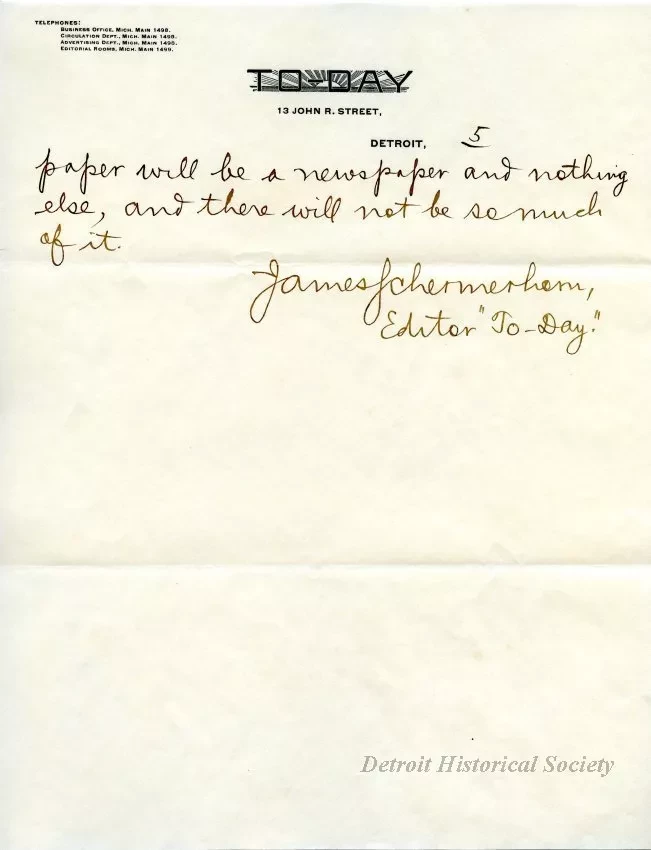 TELEPHONES:
BUSINESS OFFICE, MICH. MAIN 1498.
CIRCULATION DEPT., MICH. MAIN 1498.
ADVERTISING DEPT., MICH. MAIN 1498.
EDITORIAL ROOMS, MICH. MAIN 1499.
TO-DAY
13 JOHN R. STREET,
DETROIT, 5
paper will be a newspaper and nothing
else, and there will not be so much
of it.
James Schermerhorn,
Editor "To-Day."
Detroit Historical Society